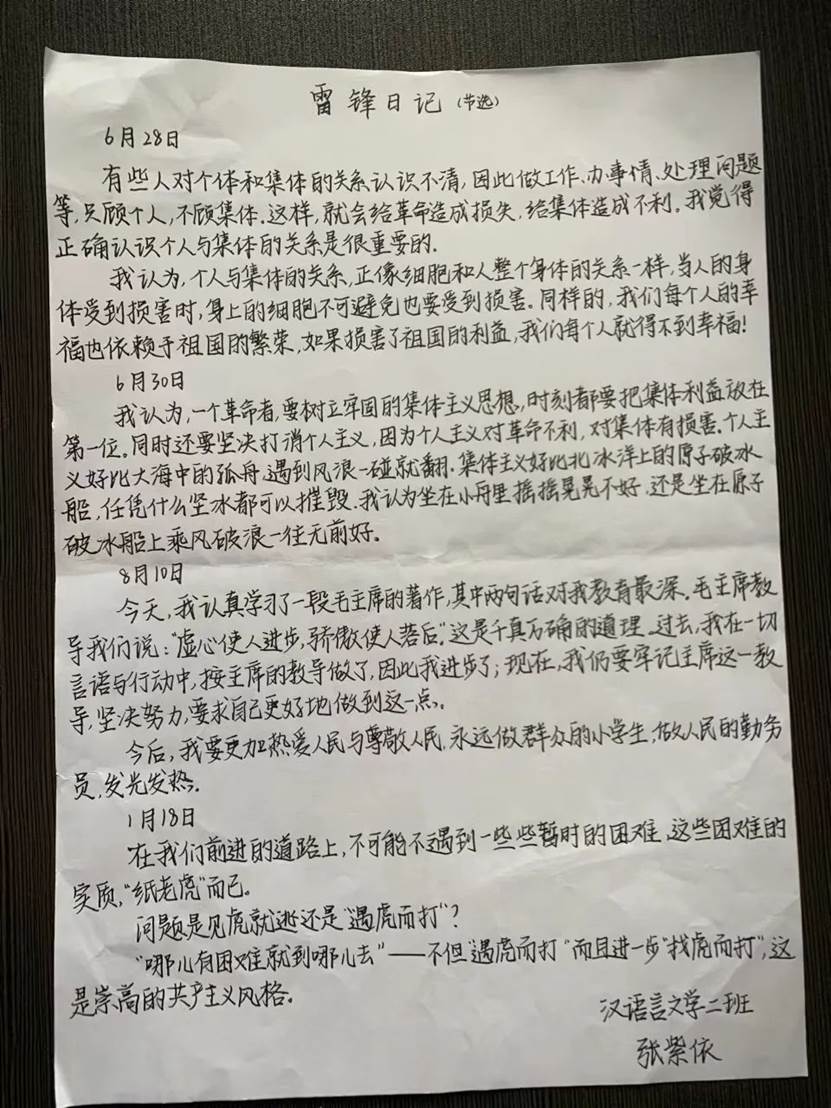 雷锋日记(节选)
6月28日
有些人对个体和集体的关系认识不清,因此做工作、办事情、处理问题
等,只顾个人,不顾集体.这样,就会给革命造成损失,给集体造成不利.我觉得
正确认识个人与集体的关系是很重要的.
我认为,个人与集体的关系,正像细胞和人整个身体的关系一样,当人的身
体受到损害时,身上的细胞不可避免也要受到损害.同样的,我们每个人的幸
福也依赖于祖国的繁荣,如果损害了祖国的利益,我们每个人就得不到幸福!
6月30日
我认为,一个革命者,要树立牢固的集体主义思想,时刻都要把集体利益放在
第一位.同时还要坚决打消个人主义,因为个人主义对革命不利,对集体有损害.个人主
义好比大海中的孤舟,遇到风浪一碰就翻.集体主义好比北冰洋上的原子破冰
船,任凭什么坚冰都可以摧毁.我认为坐在小舟里摇摇晃晃不好,还是坐在原子
破冰船上乘风破浪一往无前好。
8月10日
今天,我认真学习了一段毛主席的著作,其中两句话对我教育最深.毛主席教
导我们说:“虚心使人进步,骄傲使人落后”.这是千真万确的道理.过去,我在一切
言语与行动中,按主席的教导做了,因此我进步了;现在,我仍要牢记主席这一教
导,坚决努力,要求自己更好地做到这一点.
今后,我要更加热爱人民与尊敬人民,永远做群众的小学生,做人民的勤务
员,发光发热.
1月18日
在我们前进的道路上,不可能不遇到一些些暂时的困难,这些困难的
实质,“纸老虎”而已。
问题是见虎就逃还是“遇虎而打”?
“哪儿有困难就到哪儿去”——不但“遇虎而打”而且进一步“找虎而打”,这
是崇高的共产主义风格。
汉语言文学二班
张紫依